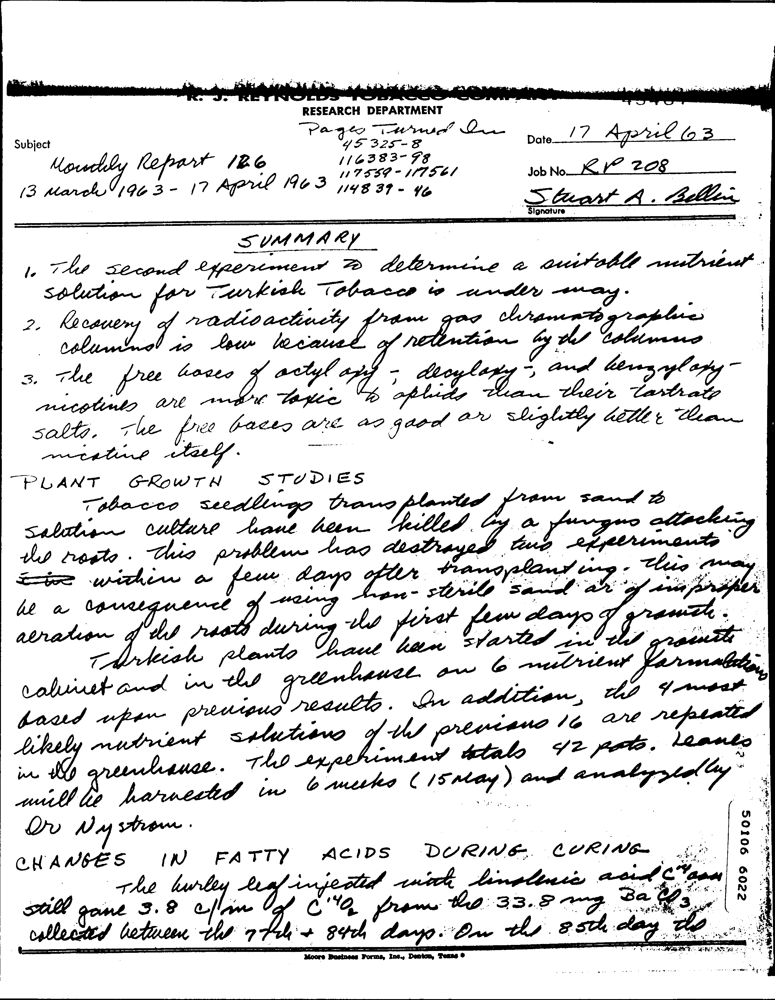 R. J. REYNOLDS TOBACCO COMPANY
RESEARCH DEPARTMENT
Pages Turned In
Subject
45325-8
Date 17 April 63
Monthly Report 126
116383-98
13 March 1963 - 17 April 1963
117559-117561
Job No. RP 208
114839-46
Stuart A. Bellin
Signature
SUMMARY
1. The second experiment to determine a suitable nutrient
solution for Turkish Tobacco is under way.
2. Recovery of radioactivity from gas chromatographic
columns is low because of retention by the columns
3. The free bases of octyloxy-, decyloxy-, and benzyloxy-
nicotines are more toxic to aphids than their tartrate
salts. The free bases are as good or slightly better than
nicotine itself.
PLANT GROWTH STUDIES
Tobacco seedlings transplanted from sand to
solution culture have been killed by a fungus attacking
the roots. This problem has destroyed two experiments
within a few days after transplanting. This may
be a consequence of using non-sterile sand or of improper
aeration of the roots during the first few days of growth.
Turkish plants have been started in the growth
cabinet and in the greenhouse on 6 nutrient formulations
based upon previous results. In addition, the 4 most
likely nutrient solutions of the previous 16 are repeated
in the greenhouse. The experiment totals 42 pots. Leaves
will be harvested in 6 weeks (15 May) and analyzed by
Dr Nystrom.
CHANGES IN FATTY ACIDS DURING CURING
The burley leaf injected with linolenic acid C14
still gave 3.8 c/m of C14O2 from the 33.8 mg BaCO3
collected between the 77th + 84th days. On the 85th day the
50106 6022
Moore Business Forms, Inc., Denton, Texas